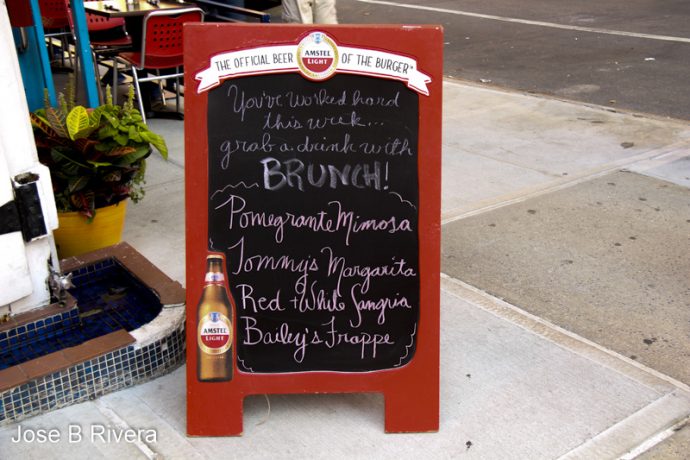 THE OFFICIAL BEER AMSTEL LIGHT OF THE BURGER™
You've worked hard
this week...
grab a drink with
BRUNCH!
Pomegrante Mimosa
Tommy's Margarita
Red + White Sangria
Bailey's Frappe
AMSTEL
LIGHT
Jose B Rivera